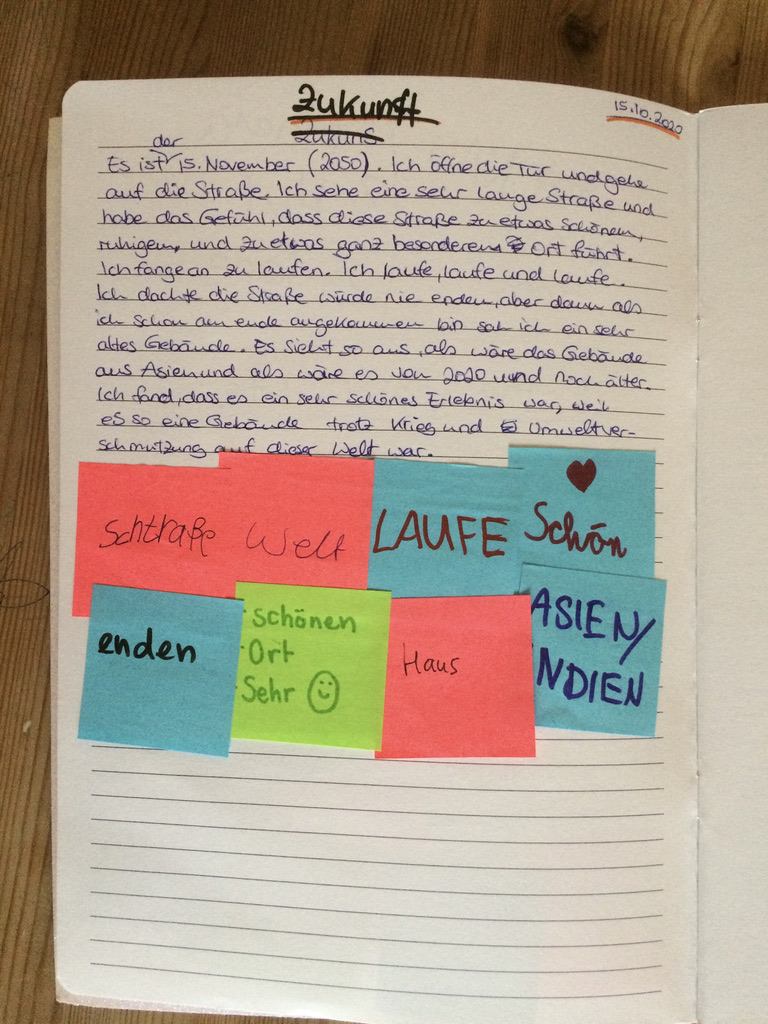 Zukunft
15.10.2020
Zukunft
der
Es ist 15. November (2050). Ich öffne die Tür und gehe
auf die Straße. Ich sehe eine sehr lange Straße und
habe das Gefühl, dass diese Straße zu etwas schönem,
ruhigem, und zu etwas ganz besonderem Ort führt.
Ich fange an zu laufen. Ich laufe, laufe und laufe.
Ich dachte die Straße würde nie enden, aber dann als
ich schon am ende angekommen bin sah ich ein sehr
altes Gebäude. Es sieht so aus, als wäre das Gebäude
aus Asien und als wäre es von 2020 und noch älter.
Ich fand, dass es ein sehr schönes Erlebnis war, weil
es so eine Gebäude trotz Krieg und Umweltver-
schmutzung auf dieser Welt war.
Schtraße
Welt
LAUFE
Schön
enden
· schönen
· Ort
· Sehr
Haus
ASIEN/
INDIEN